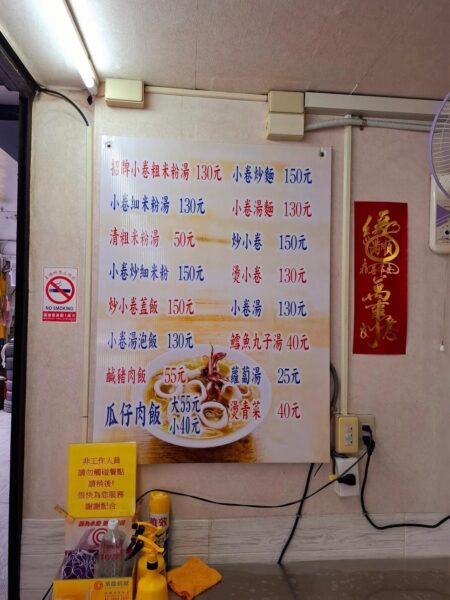 招牌小卷粗米粉湯 130元
小卷細米粉湯 130元
清粗米粉湯 50元
小卷炒細米粉 150元
炒小卷蓋飯 150元
小卷湯泡飯 130元
鹹豬肉飯 55元
瓜仔肉飯 大55元 小40元
小卷炒麵 150元
小卷湯麵 130元
炒小卷 150元
燙小卷 130元
小卷湯 130元
鱈魚丸子湯 40元
蘿蔔湯 25元
燙青菜 40元
NO SMOKING
萬事
非工作人員
請勿觸碰餐點
請稍後!
很快為您服務
謝謝配合